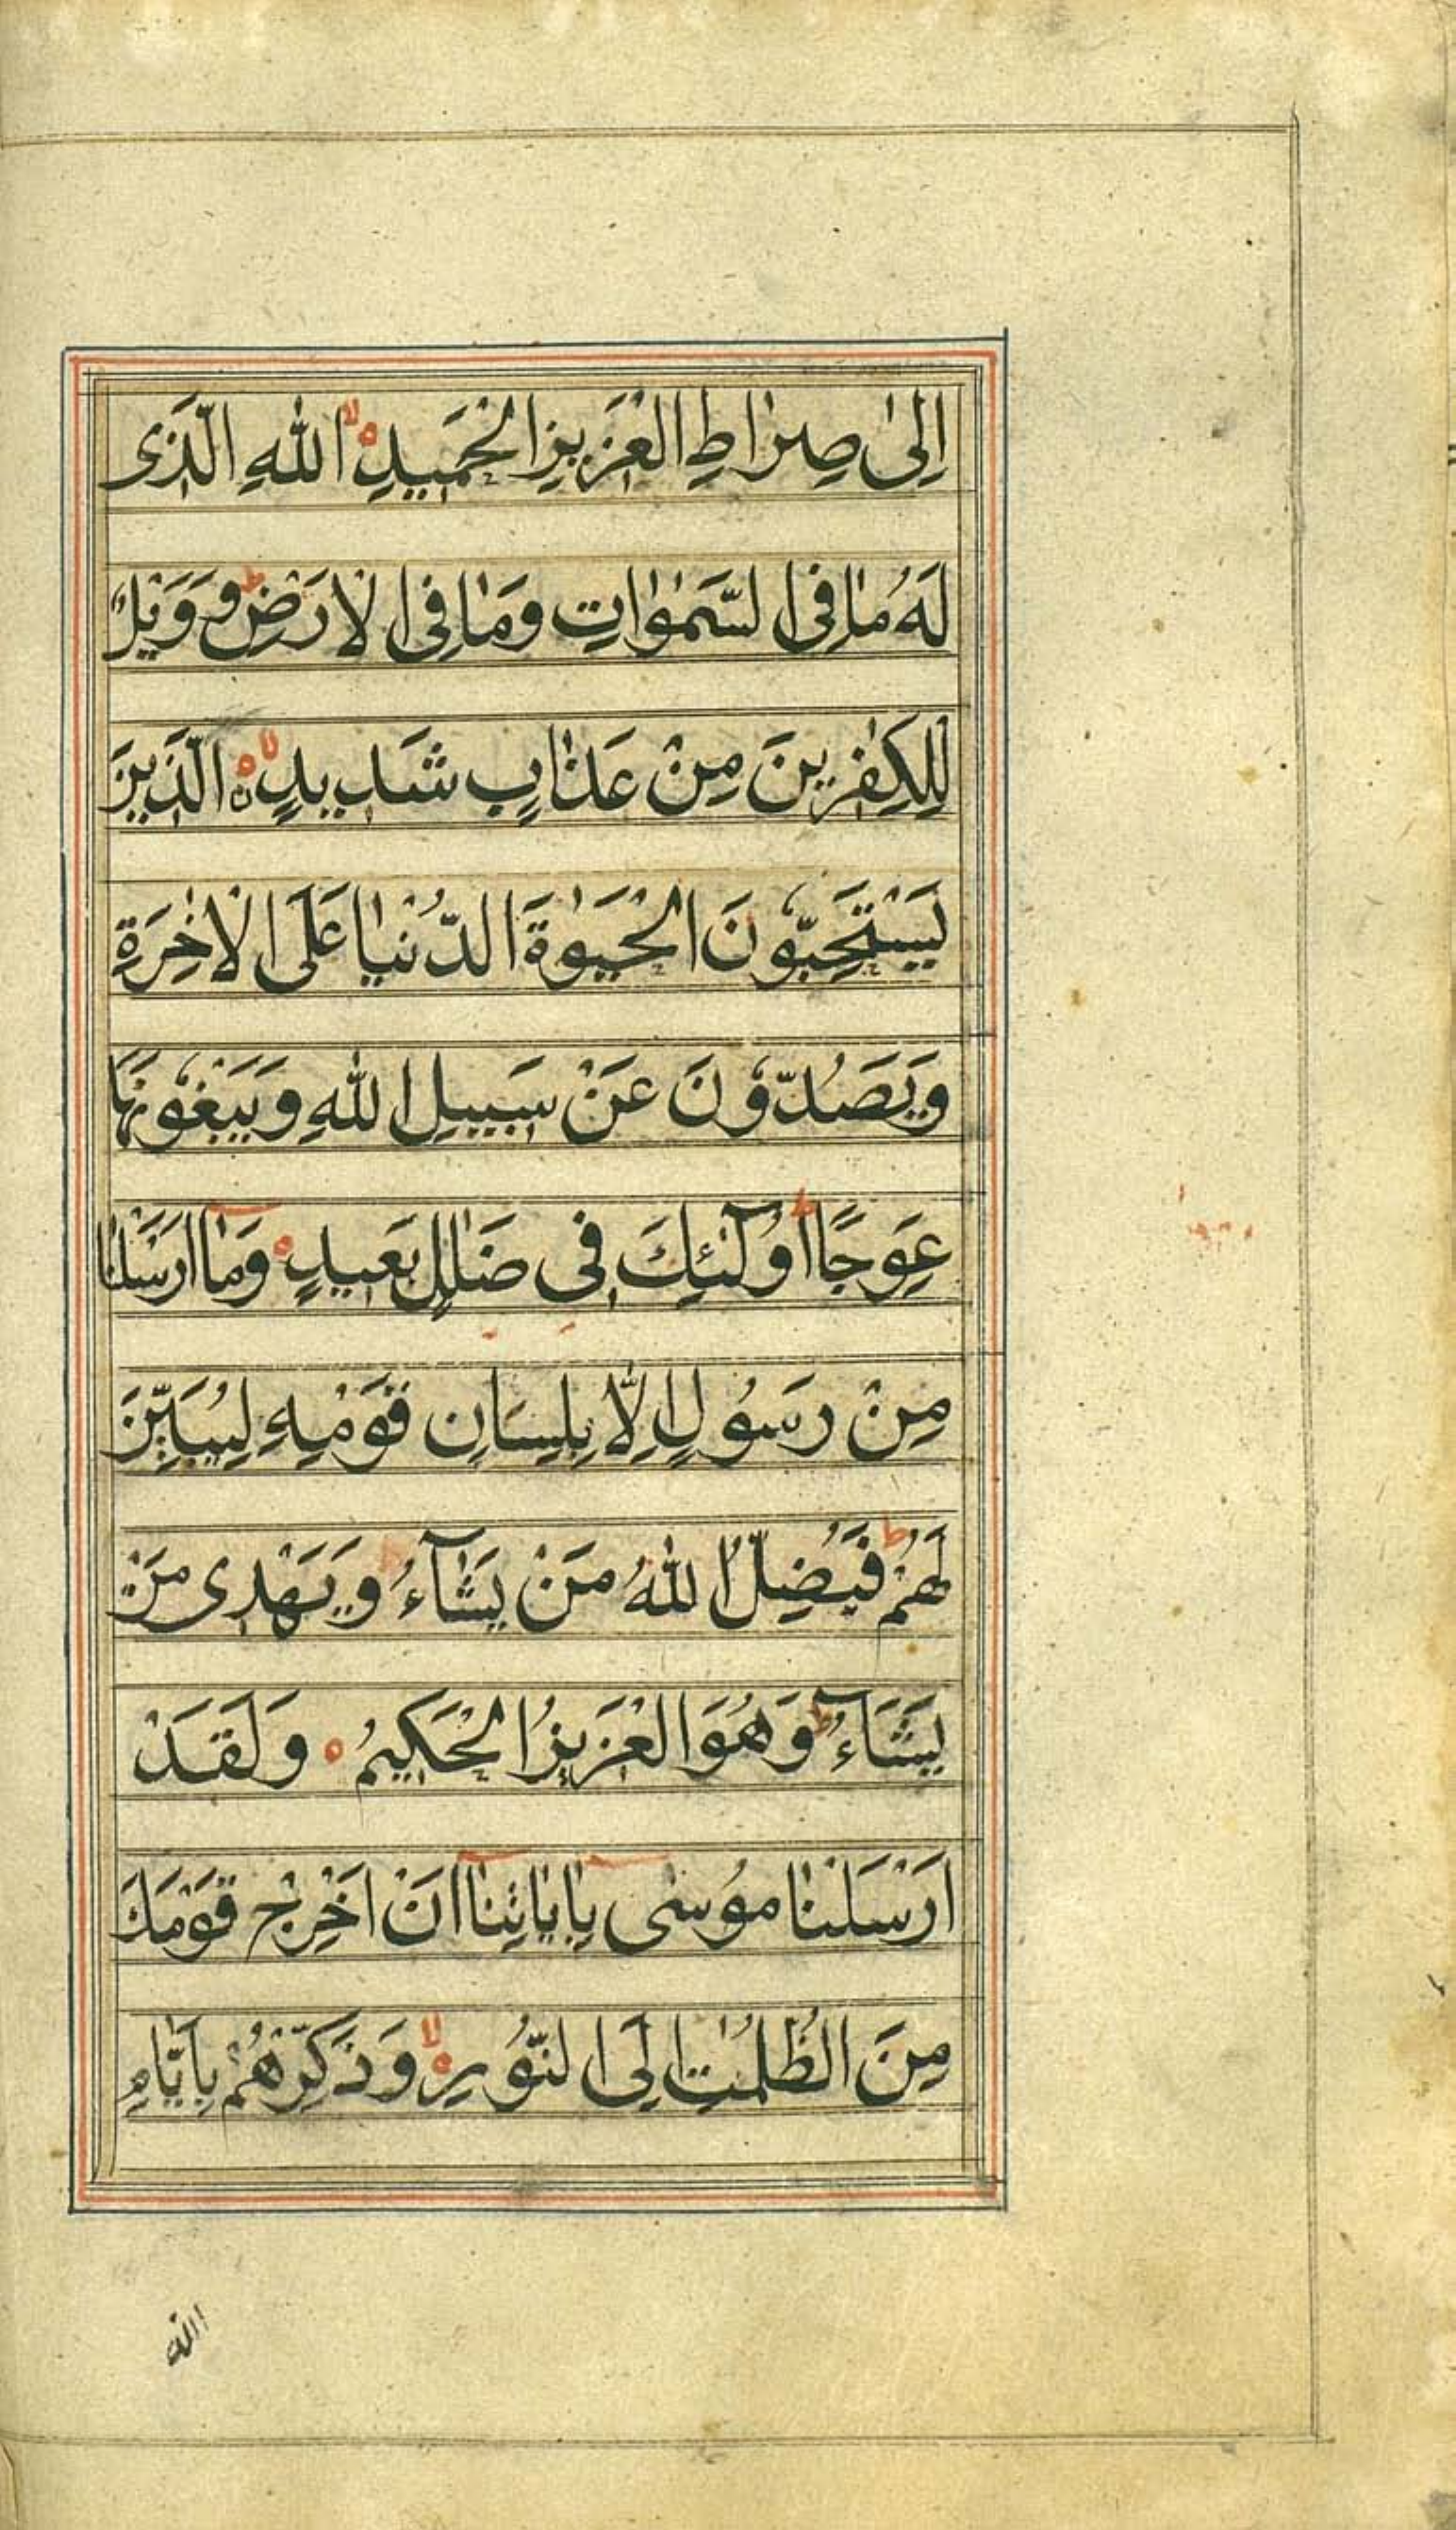 اِلىٰ صِرٰاطِ الْعَزٖيزِ الْحَمٖيدِ ۙ اللّٰهِ الَّذٖى
لَهُ مٰا فِى السَّمٰوٰاتِ وَمٰا فِى الْاَرْضِ ط و وَوَيْلٌ
لِلْكٰفِرٖينَ مِنْ عَذٰابٍ شَدٖيدٍ ۙ الَّذٖينَ
يَسْتَحِبُّونَ الْحَيٰوةَ الدُّنْيٰا عَلَى الْاٰخِرَةِ
وَيَصُدُّونَ عَنْ سَبٖيلِ اللّٰهِ وَيَبْغُونَهٰا
عِوَجًا ط اُولٰٓئِكَ فٖى ضَلٰلٍ بَعٖيدٍ ه وَمٰٓا اَرْسَلْنٰا
مِنْ رَسُولٍ اِلّٰا بِلِسٰانِ قَوْمِهٖ لِيُبَيِّنَ
لَهُمْ ط فَيُضِلُّ اللّٰهُ مَنْ يَشٰٓاءُ وَيَهْدٖى مَنْ
يَشَٓاءُ ط وَهُوَ الْعَزٖيزُ الْحَكٖيمُ ه وَلَقَدْ
اَرْسَلْنٰا مُوسٰى بِاٰيٰاتِنٰٓا اَنْ اَخْرِجْ قَوْمَكَ
مِنَ الظُّلُمٰتِ اِلَى النُّورِ ۙ وَذَكِّرْهُمْ بِاَيّٰامِ
اللّه